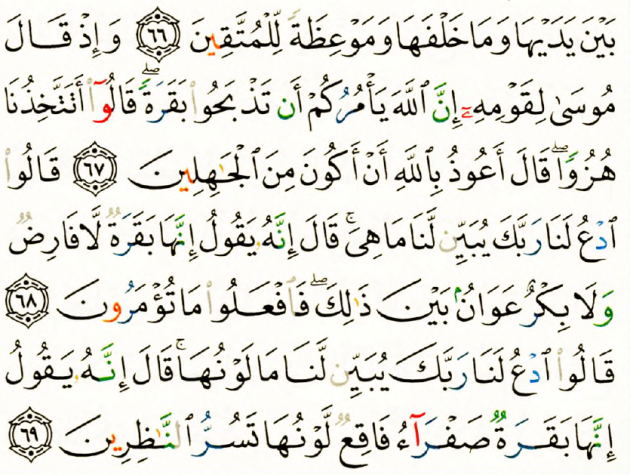 بَيْنَ يَدَيْهَا وَمَا خَلْفَهَا وَمَوْعِظَةً لِّلْمُتَّقِينَ ٦٦ وَإِذْ قَالَ
مُوسَىٰ لِقَوْمِهِۦٓ إِنَّ ٱللَّهَ يَأْمُرُكُمْ أَن تَذْبَحُوا۟ بَقَرَةًۖ قَالُوٓا۟ أَتَتَّخِذُنَا
هُزُوًاۖ قَالَ أَعُوذُ بِٱللَّهِ أَنْ أَكُونَ مِنَ ٱلْجَـٰهِلِينَ ٦٧ قَالُوا۟
ٱدْعُ لَنَا رَبَّكَ يُبَيِّن لَّنَا مَا هِىَۚ قَالَ إِنَّهُۥ يَقُولُ إِنَّهَا بَقَرَةٌ لَّا فَارِضٌ
وَلَا بِكْرٌ عَوَانٌۢ بَيْنَ ذَٰلِكَۖ فَٱفْعَلُوا۟ مَا تُؤْمَرُونَ ٦٨
قَالُوا۟ ٱدْعُ لَنَا رَبَّكَ يُبَيِّن لَّنَا مَا لَوْنُهَاۚ قَالَ إِنَّهُۥ يَقُولُ
إِنَّهَا بَقَرَةٌ صَفْرَآءُ فَاقِعٌ لَّوْنُهَا تَسُرُّ ٱلنَّـٰظِرِينَ ٦٩